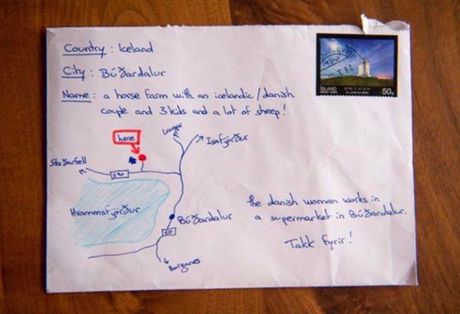 Country: Iceland
City: Búðardalur
Name: a horse farm with an icelandic/danish
couple and 3 kids and a lot of sheep!
here
Isafjörður
Staðarfell
Hvammsfjörður
Búðardalur
60
Borganes
the danish woman works in
a supermarket in Búðardalur.
Takk fyrir!
ÍSLAND
50g